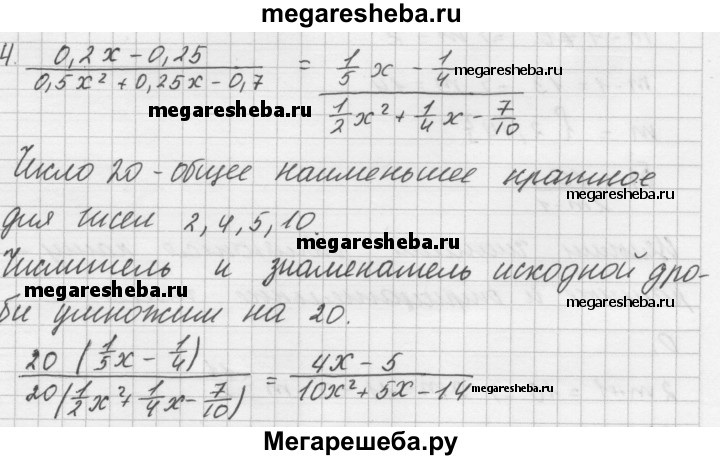 megaresheba.ru
4. (0,2x − 0,25)/(0,5x² + 0,25x − 0,7) = (1/5 x − 1/4)/(1/2 x² + 1/4 x − 7/10)
megaresheba.ru
megaresheba.ru
Число 20 - общее наименьшее кратное
megaresheba.ru
для чисел 2, 4, 5, 10.
megaresheba.ru
Числитель и знаменатель исходной дро-
megaresheba.ru
megaresheba.ru
би умножим на 20.
20 (1/5 x − 1/4)/20(1/2 x² + 1/4 x − 7/10) = (4x − 5)/(10x² + 5x − 14)
megaresheba.ru
Мегарешеба.ру